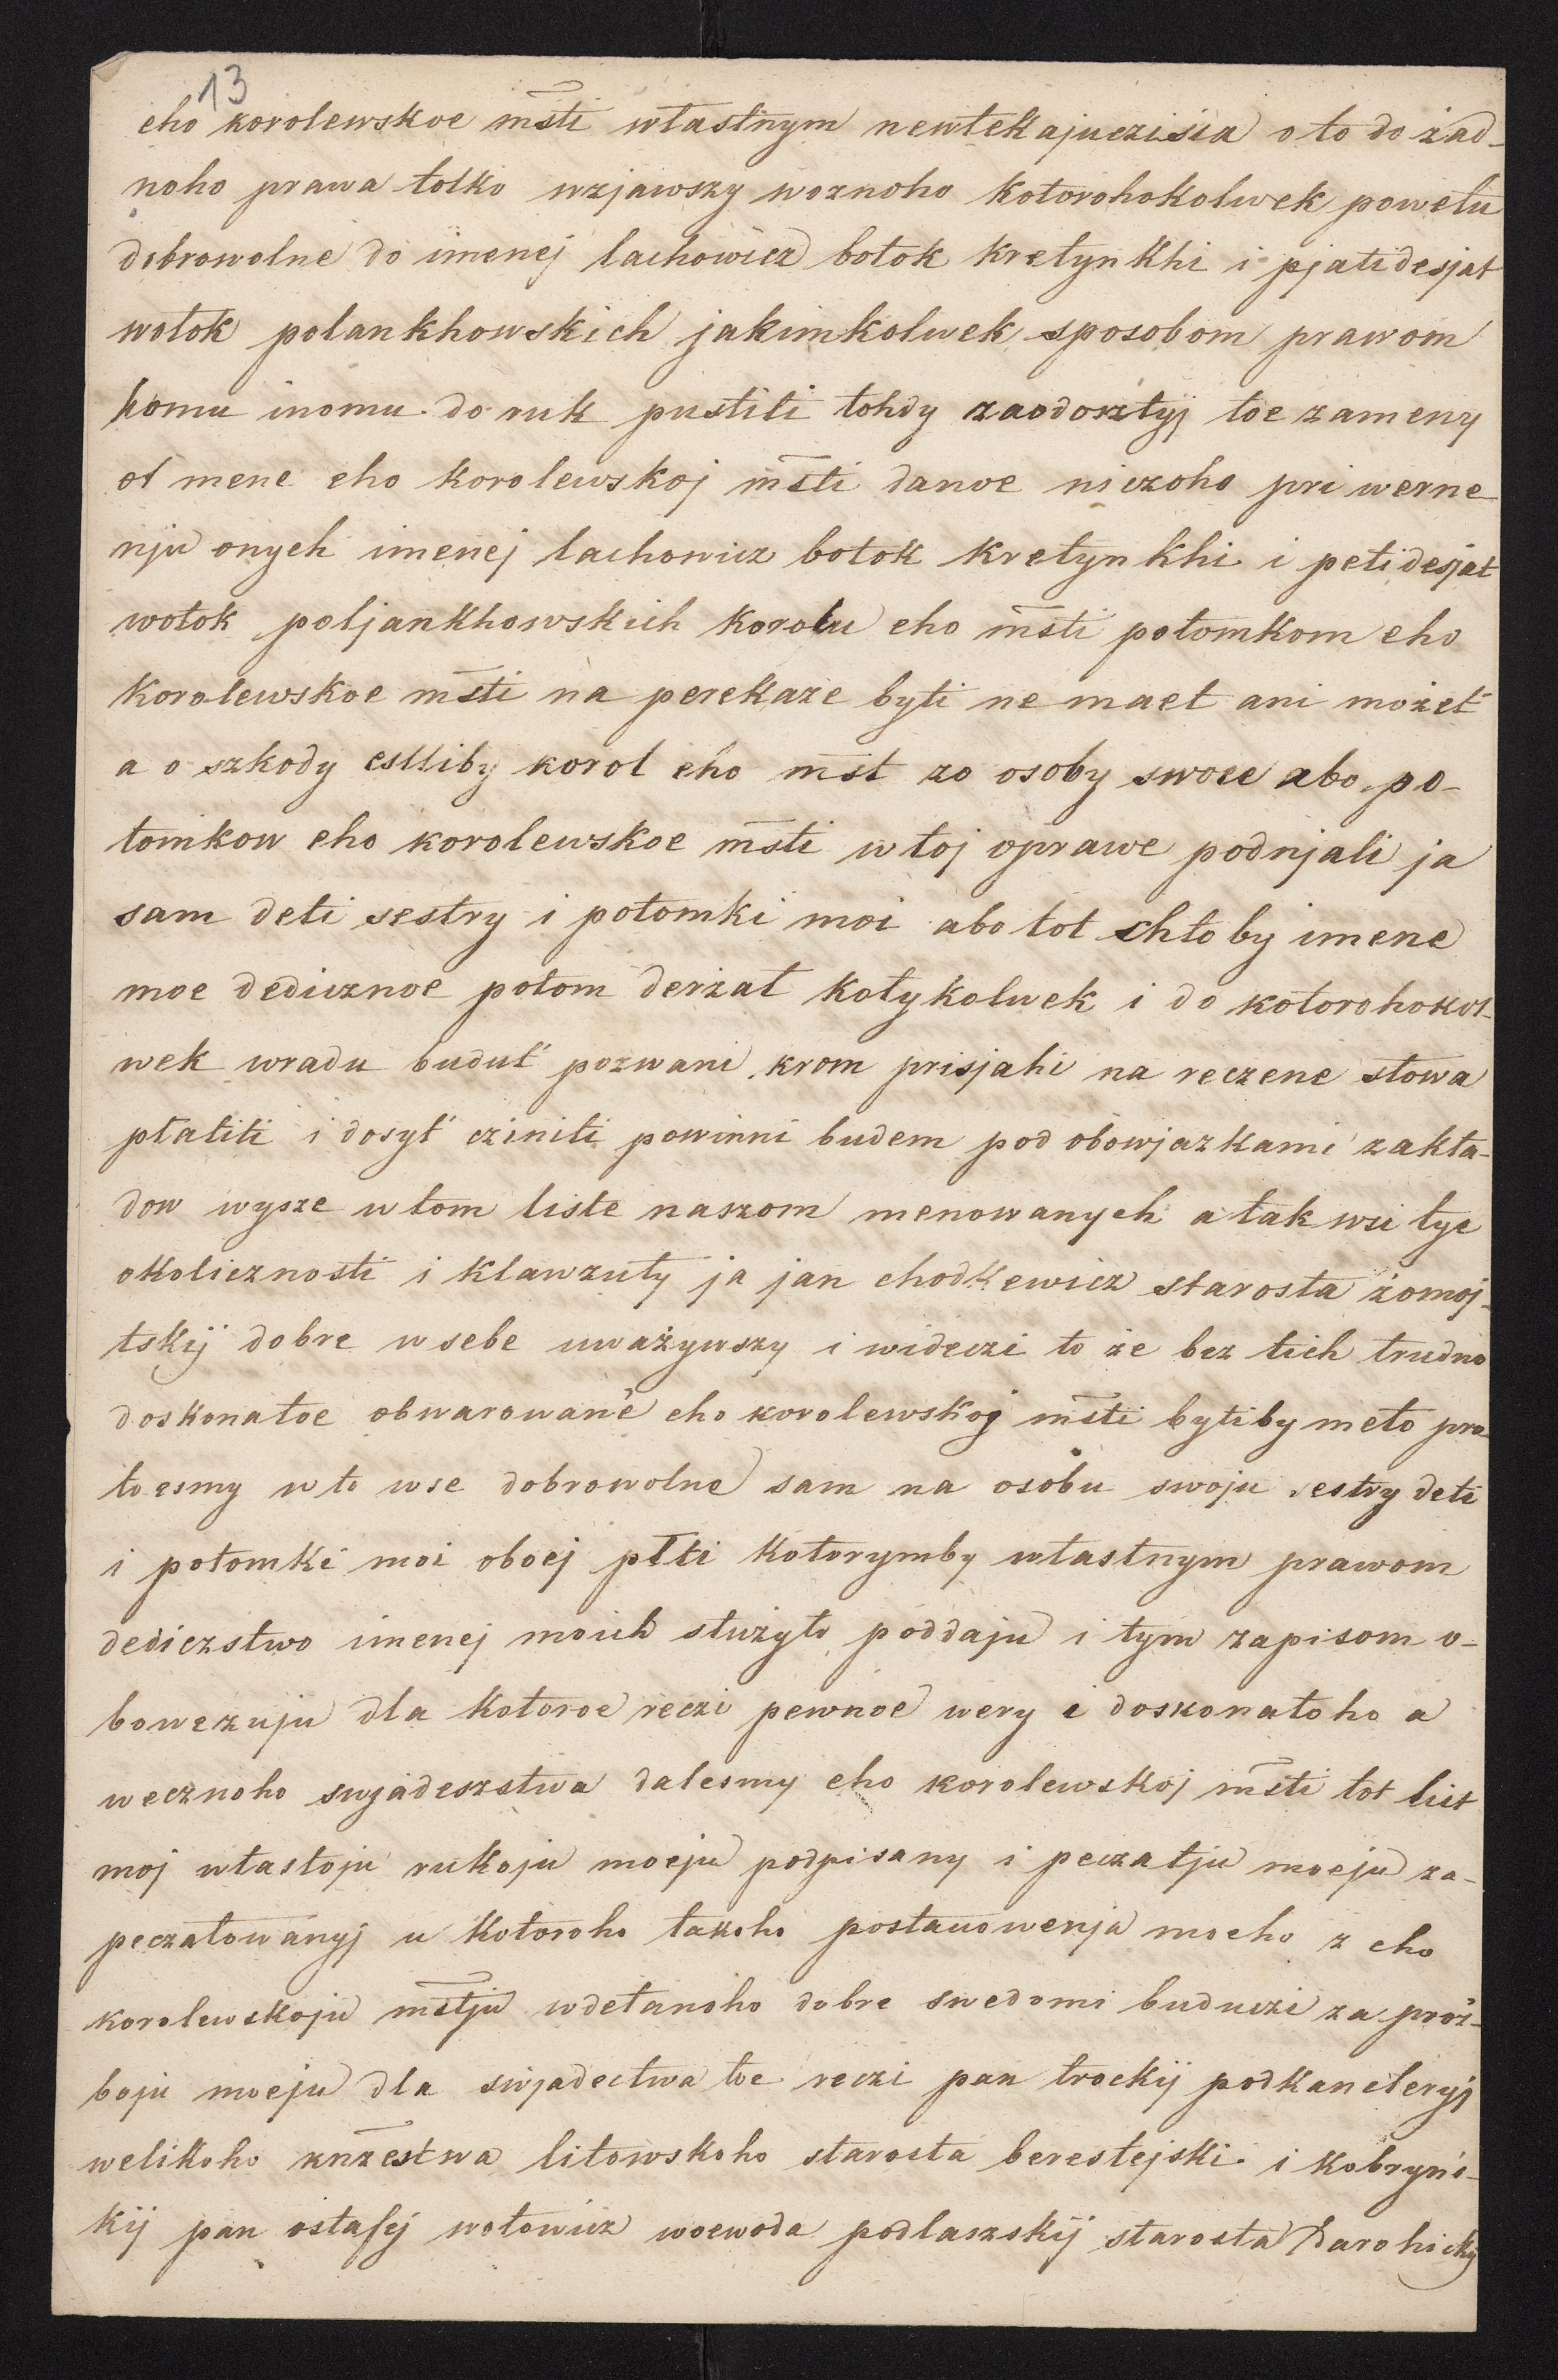 13
eho korolewskoe m̄sti własnym newtekajuczisia o to do żad-
noho prawa tolko wzjawszy woznoho kotorohokolwek powetu
dobrowolne do imenej lachowicz botok kretynkhi i pjatidesjat
wołok polankhowskich jakimkolwek sposobom prawom
komu inomu do ruk pustiti tohdy zaodosztyj toe zameny
ot mene eho korolewskoj m̄sti danoe niczoho pri werne-
nju onych imenej lachowicz botok kretynkhi i petidesjat
wołok poljankhowskich korolu eho m̄sti potomkom eho
korolewskoe m̄sti na perekaze byti ne maet ani możet
a o szkody estliby korol eho m̄st zo osoby swoee abo po-
tomkow eho korolewskoe m̄sti w toj oprawe podnjali ja
sam deti sestry i potomki moi abo tot chtoby imene
moe dedicznoe potom derżał kotykolwek i do kotorohokol-
wek wradu budut' pozwani krom prisjahi na reczene słowa
płatiti i dosyt' cziniti powinni budem pod obowjazkami zakła-
dow wysze w tom liste naszom menowanych a tak wsi tye
okolicznosti i klawzuły ja jan chodkewicz starosta żomoj-
tskij dobre w sebe uważywszy i wideczi to że bez tich trudno
doskonałoe obwarowan'e eho korolewskoj m̄sti bytiby meło pro-
to esmy w to wse dobrowolne sam na osobu swoju sestry deti
i potomki moi oboej płti kotorymby własnym prawom
dedicztwo imenej moich służyło poddaju i tym zapisom o-
bowezuju dla kotoroe reczi pewnoe wery i doskonałoho a
wecznoho swjadeszstwa dalesmy eho korolewskoj m̄sti tot list
moj włastoju rukoju moeju podpisany i peczatju moeju za-
peczatowanyj u kotoroho takoho postanowenja moeho z eho
korolewskoju m̄stju wdełanoho dobre swedomi buduczi za proż-
boju moeju dla swjadectwa toe reczi pan trockij podkancleryj
welikoho knżestwa litowskoho starosta berestejski i kobryns-
kij pan ostafej wołowicz woewoda podlaszskij starosta darohickij